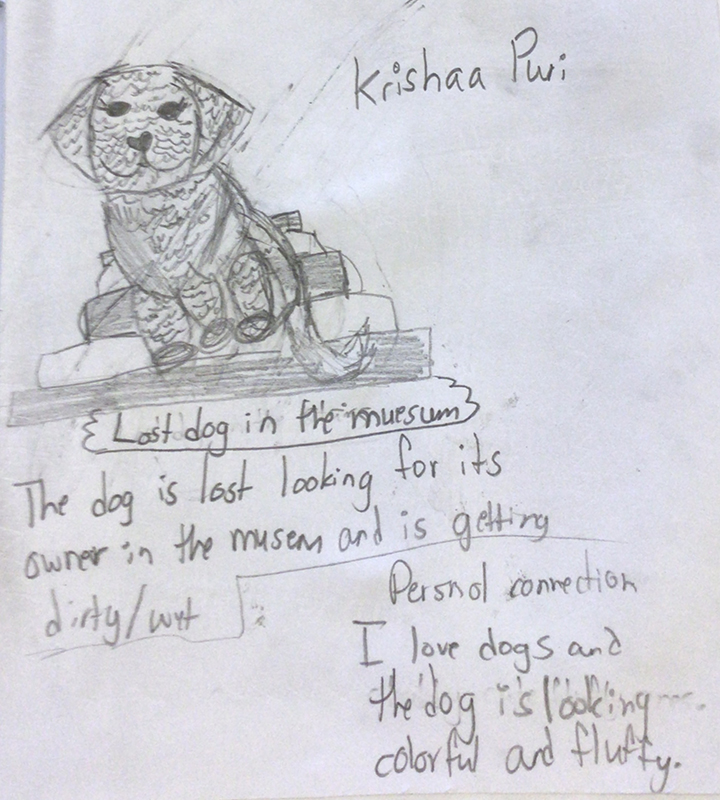 Krishaa Puri
Lost dog in the muesum
The dog is lost looking for its
owner in the musem and is getting
dirty/wet
Persnol connection
I love dogs and
the dog is looking
colorful and fluffy.